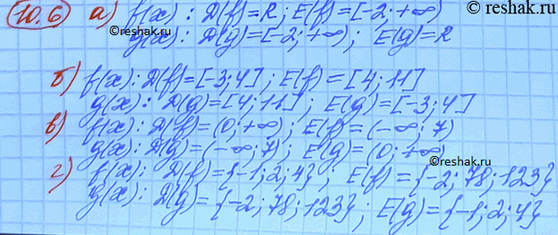 reshak.ru
10.6 а) f(x) : D(f)=R; E(f)=[-2; +∞)
g(x) : D(g)=[-2; +∞); E(g)=R
б) f(x): D(f)=[-3; 4]; E(f)=[4; 11]
g(x): D(g)=[4; 11]; E(g)=[-3; 4]
в) f(x): D(f)=(0; +∞); E(f)=(-∞; 7)
g(x): D(g)=(-∞; 7); E(g)=(0; +∞)
г) f(x): D(f)={-1; 2; 4}; E(f)={-2; 78; 123}
g(x): D(g)={-2; 78; 123}; E(g)={-1; 2; 4}
©reshak.ru